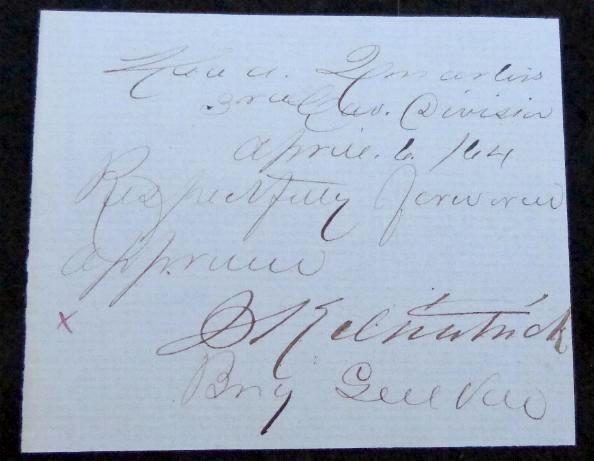 Head Quarters
3rd Cav. Division
April 6 /64
Respectfully forward
approved
J Kilpatrick
Brig Genl Vols
x